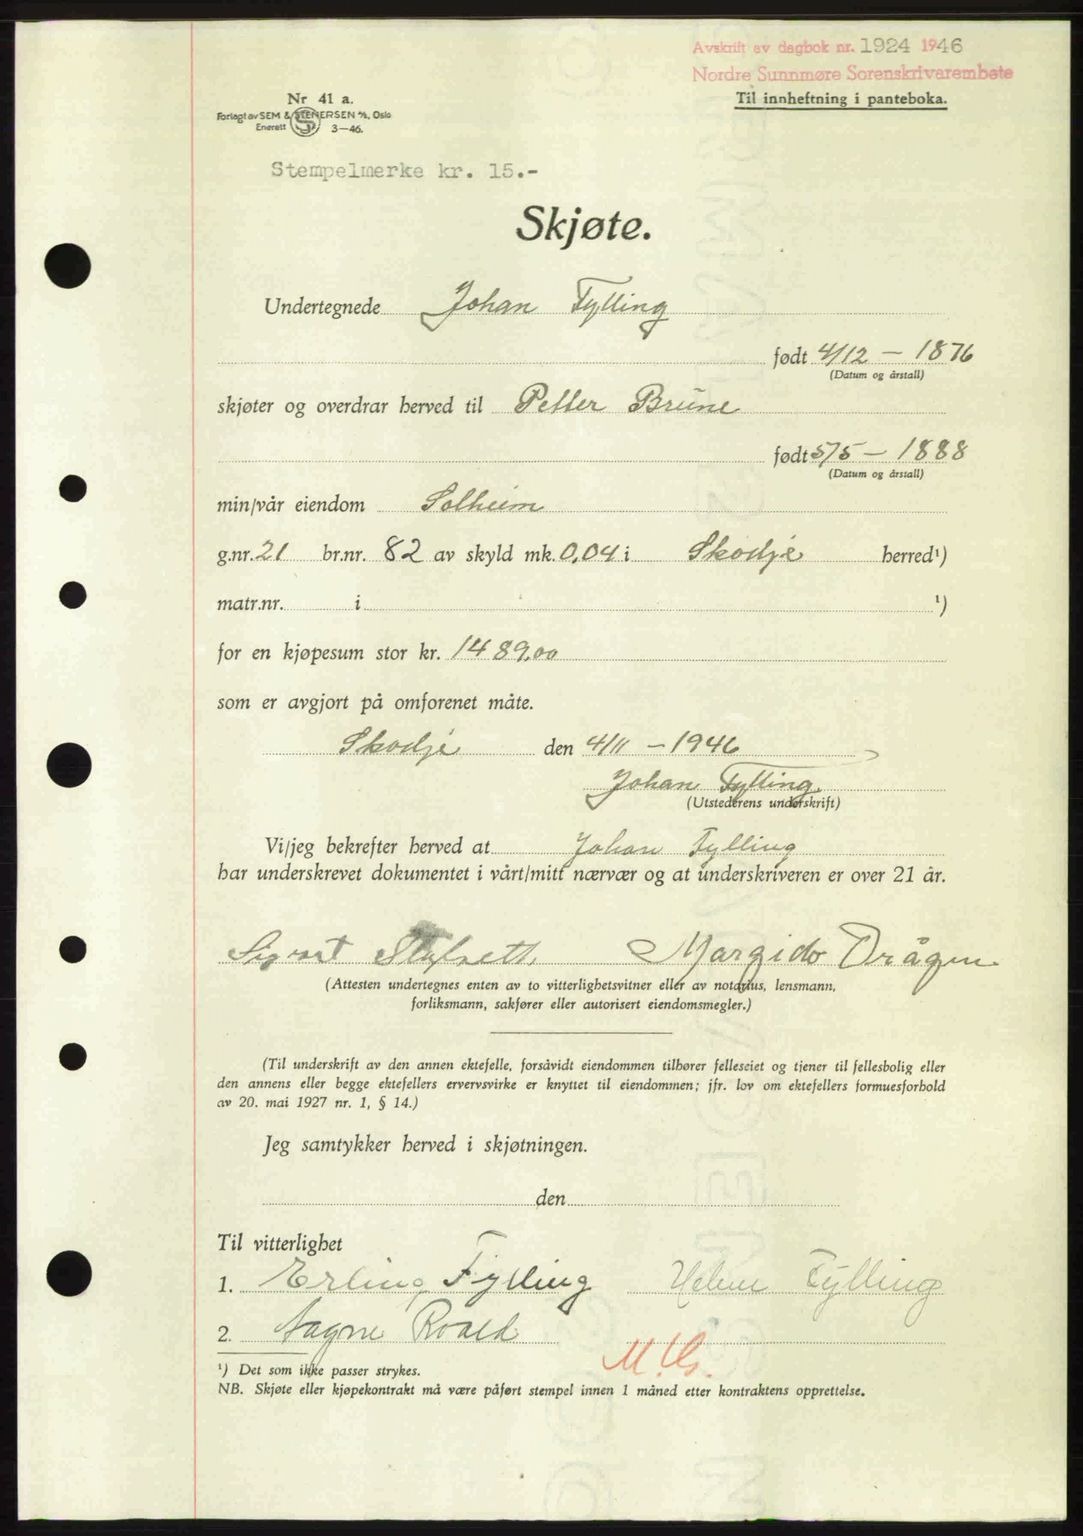 Avskrift av dagbok nr. 1924 1946
Nordre Sunnmøre Sorenskrivarembete
Til innheftning i panteboka.
Nr 41 a.
Forlagt av SEM & STENERSEN A/S, Oslo
Enerett S 3—46.
Stempelmerke kr. 15.-
Skjøte.
Undertegnede Johan Fylling
født 4/12 — 1876
(Datum og årstall)
skjøter og overdrar herved til Petter Brune
født 5/5 — 1888
(Datum og årstall)
min/vår eiendom Solheim
g.nr. 21 br.nr. 82 av skyld mk. 0,04 i Skodje herred¹)
matr.nr. i ¹)
for en kjøpesum stor kr. 1489,00
som er avgjort på omforenet måte.
Skodje den 4/11 — 1946
Johan Fylling
(Utstederens underskrift)
Vi/jeg bekrefter herved at Johan Fylling
har underskrevet dokumentet i vårt/mitt nærvær og at underskriveren er over 21 år.
Margido Drågen
(Attesten undertegnes enten av to vitterlighetsvitner eller av notarius, lensmann,
forliksmann, sakfører eller autorisert eiendomsmegler.)
(Til underskrift av den annen ektefelle, forsåvidt eiendommen tilhører felleseiet og tjener til fellesbolig eller
den annens eller begge ektefellers ervervsvirke er knyttet til eiendommen; jfr. lov om ektefellers formuesforhold
av 20. mai 1927 nr. 1, § 14.)
Jeg samtykker herved i skjøtningen.
den
Til vitterlighet
1. Erling Fylling Helene Fylling
2. Aagne Roald
¹) Det som ikke passer strykes.
NB. Skjøte eller kjøpekontrakt må være påført stempel innen 1 måned etter kontraktens opprettelse.